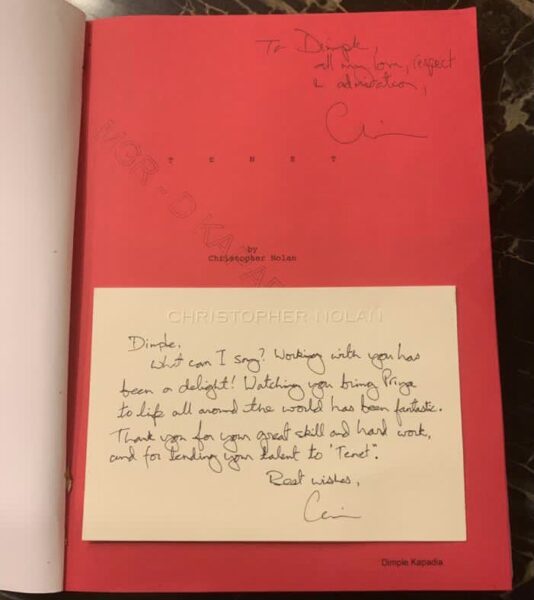 To Dimple,
all my love, respect
& admiration,
Chris
T E N E T
MGR - D KAPAD
by
Christopher Nolan
CHRISTOPHER NOLAN
Dimple,
What can I say? Working with you has
been a delight! Watching you bring Priya
to life all around the world has been fantastic.
Thank you for your great skill and hard work,
and for lending your talent to "Tenet".
Best wishes,
Chris
Dimple Kapadia